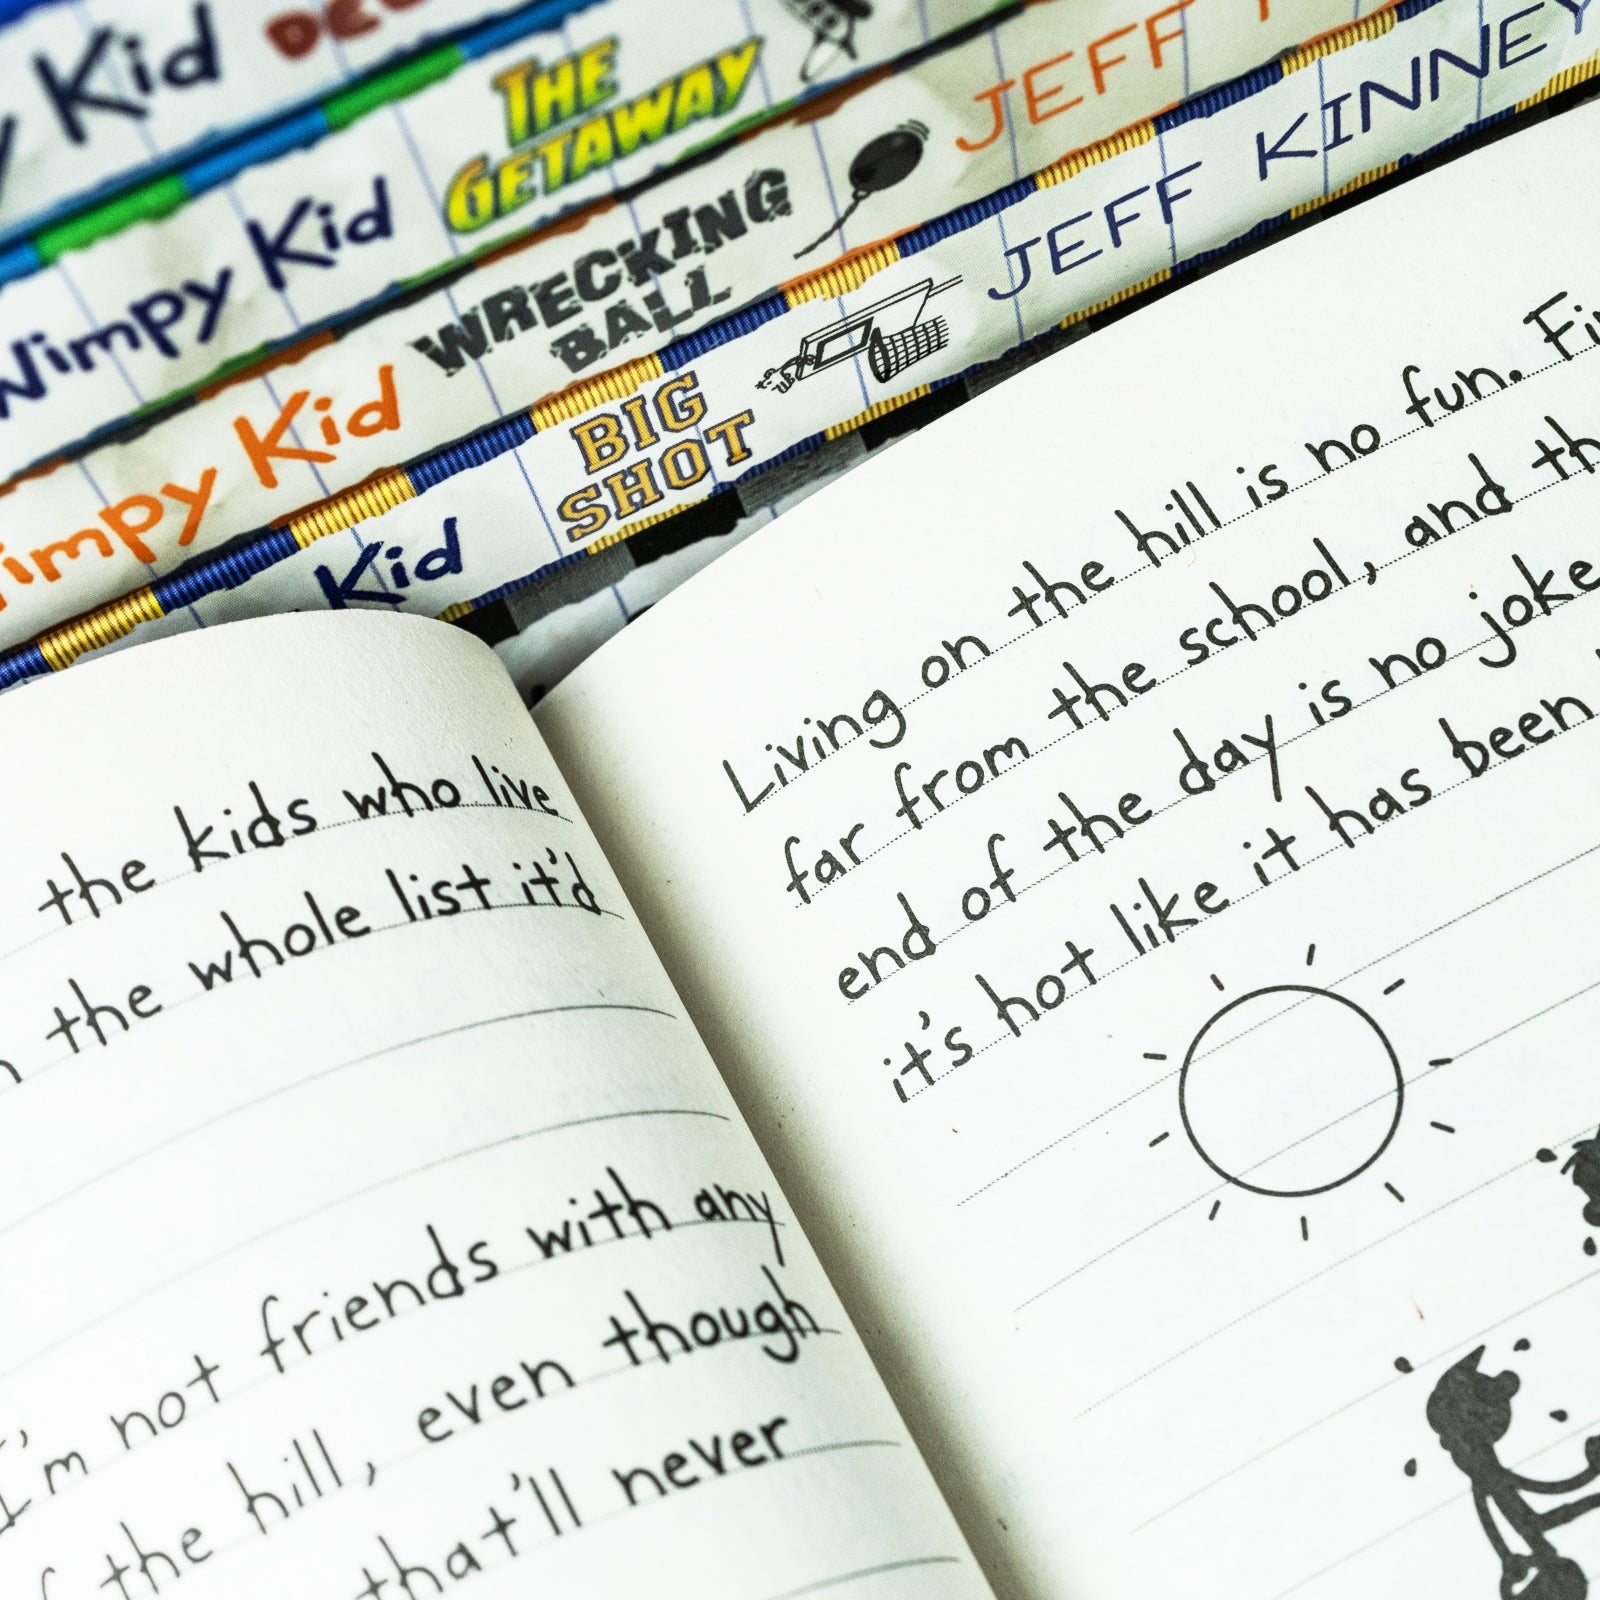 Kid
Wimpy Kid THE GETAWAY
Kid WRECKING BALL JEFF
Kid BIG SHOT JEFF KINNEY
the kids who live
the whole list it'd
I'm not friends with any
the hill, even though
that'll never
Living on the hill is no fun.
far from the school, and
end of the day is no joke
it's hot like it has been